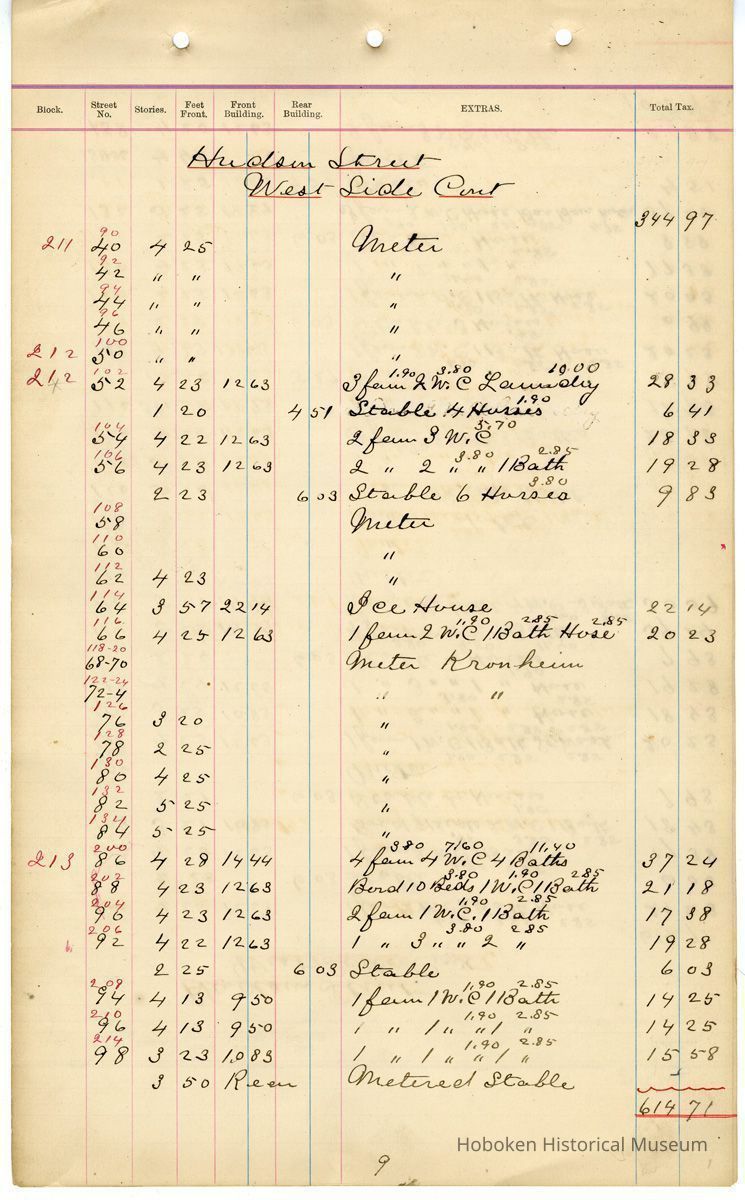 Block. Street No. Stories. Feet Front. Front Building. Rear Building. EXTRAS. Total Tax.
Hudson Street
West Side Cont
344 97
90
211 40 4 25 Meter
92
42 " " "
94
44 " " "
96
46 " " "
100
212 50 " " "
102 1.90 3.80 10.00
212 52 4 23 12 63 3 fam 2 W.C Laundry 28 33
1.90
1 20 4 51 Stable 4 Horses 6 41
104 5.70
54 4 22 12 63 2 fam 3 W.C 18 33
106 3.80 2.85
56 4 23 12 63 2 " 2 " " 1 Bath 19 28
3.80
2 23 6 03 Stable 6 Horses 9 83
108
58 Meter
110
60 "
112
62 4 23 "
114
64 3 57 22 14 Ice House 22 14
116 1.90 2.85 2.85
66 4 25 12 63 1 fam 2 W.C 1 Bath Hose 20 23
118-20
68-70 Meter Kronheim
122-24
72-4 " "
126
76 3 20 "
128
78 2 25 "
130
80 4 25 "
132
82 5 25 "
134
84 5 25 "
200 3.80 7.60 11.40
213 86 4 28 14 44 4 fam 4 W.C 4 Baths 37 24
202 3.80 1.90 2.85
88 4 23 12 63 Bord 10 Beds 1 W.C 1 Bath 21 18
204 1.90 2.85
96 4 23 12 63 2 fam 1 W.C. 1 Bath 17 38
206 3.80 2.85
92 4 22 12 63 1 " 3 " " 2 " 19 28
2 25 6 03 Stable 6 03
208 1.90 2.85
94 4 13 9 50 1 fam 1 W.C 1 Bath 14 25
210 1.90 2.85
96 4 13 9 50 1 " 1 " " 1 " 14 25
214 1.90 2.85
98 3 23 10 83 1 " 1 " " 1 " 15 58
3 50 Rear Metered Stable
614 71
Hoboken Historical Museum
9